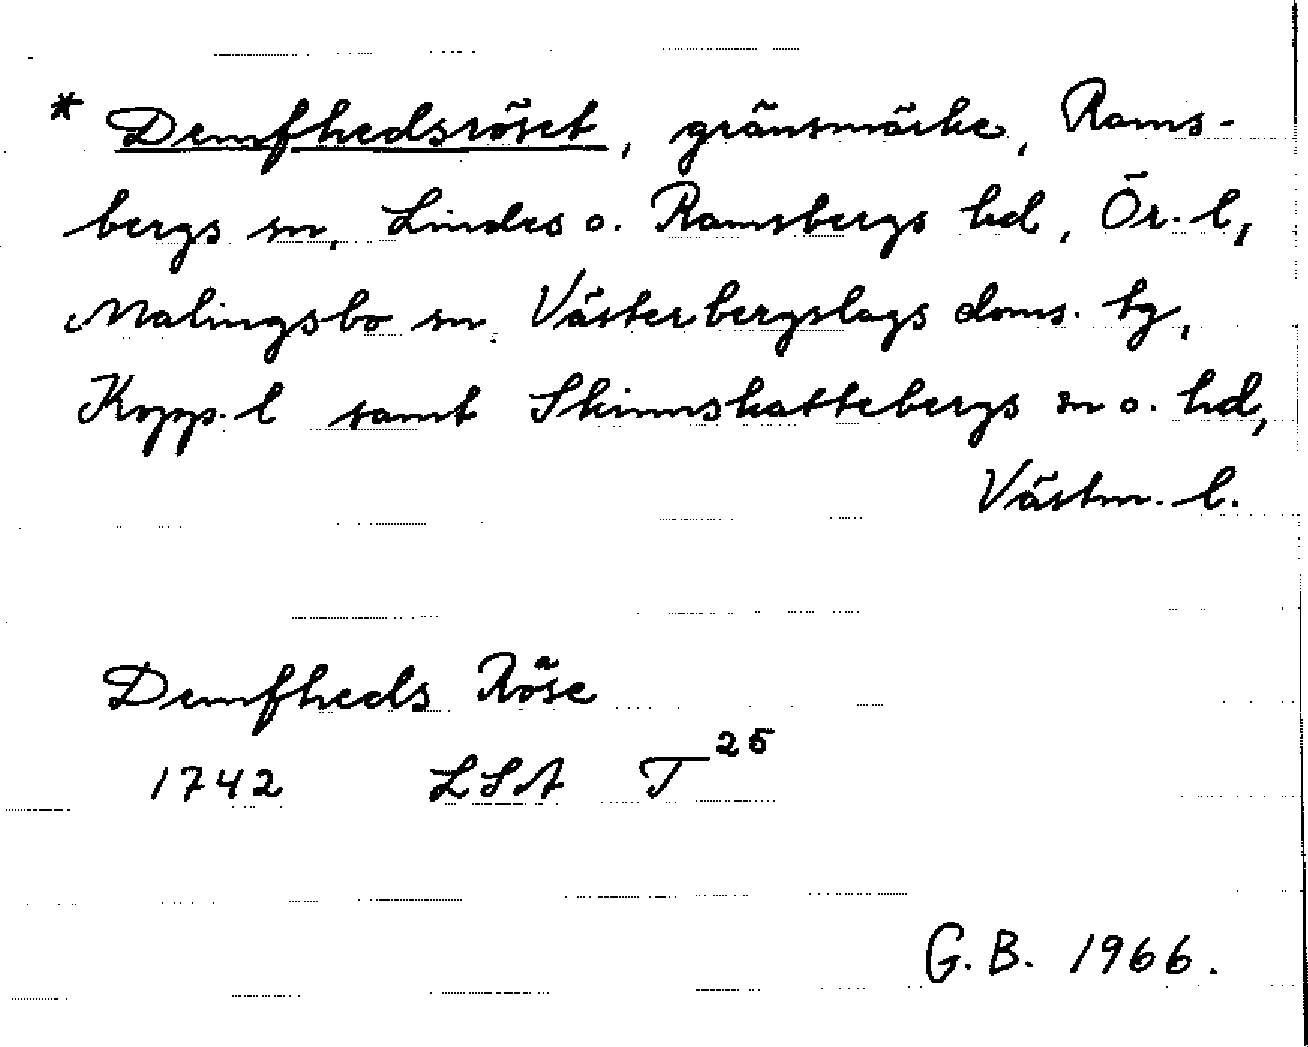 * Demfhedsröset, gränsmärke, Rams-
bergs sn, Lindes o. Ramsbergs hd, Ör. l,
Malingsbo sn, Västerbergslags doms. tg,
Kopp. l samt Skinnskattebergs sn o. hd,
Västm. l.
Demfheds Röse
1742 LSA T 25
G. B. 1966.